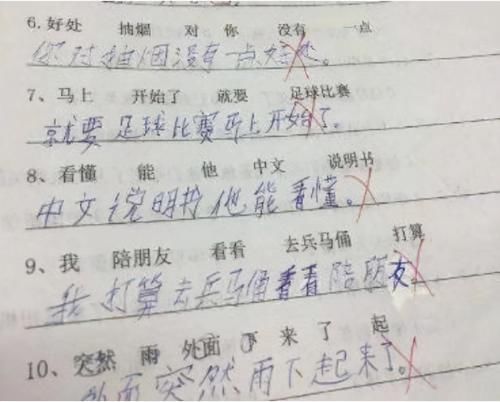 6.好处 抽烟 对 你 没有 一点
你对抽烟没有一点好处。
7、马上 开始了 就要 足球比赛
就要足球比赛马上开始了。
8、看懂 能 他 中文 说明书
中文说明书他能看懂。
9、我 陪朋友 看看 去兵马俑 打算
我打算去兵马俑看看陪朋友
10、突然 雨 外面 下 来 了 起
外面突然雨下起来了。